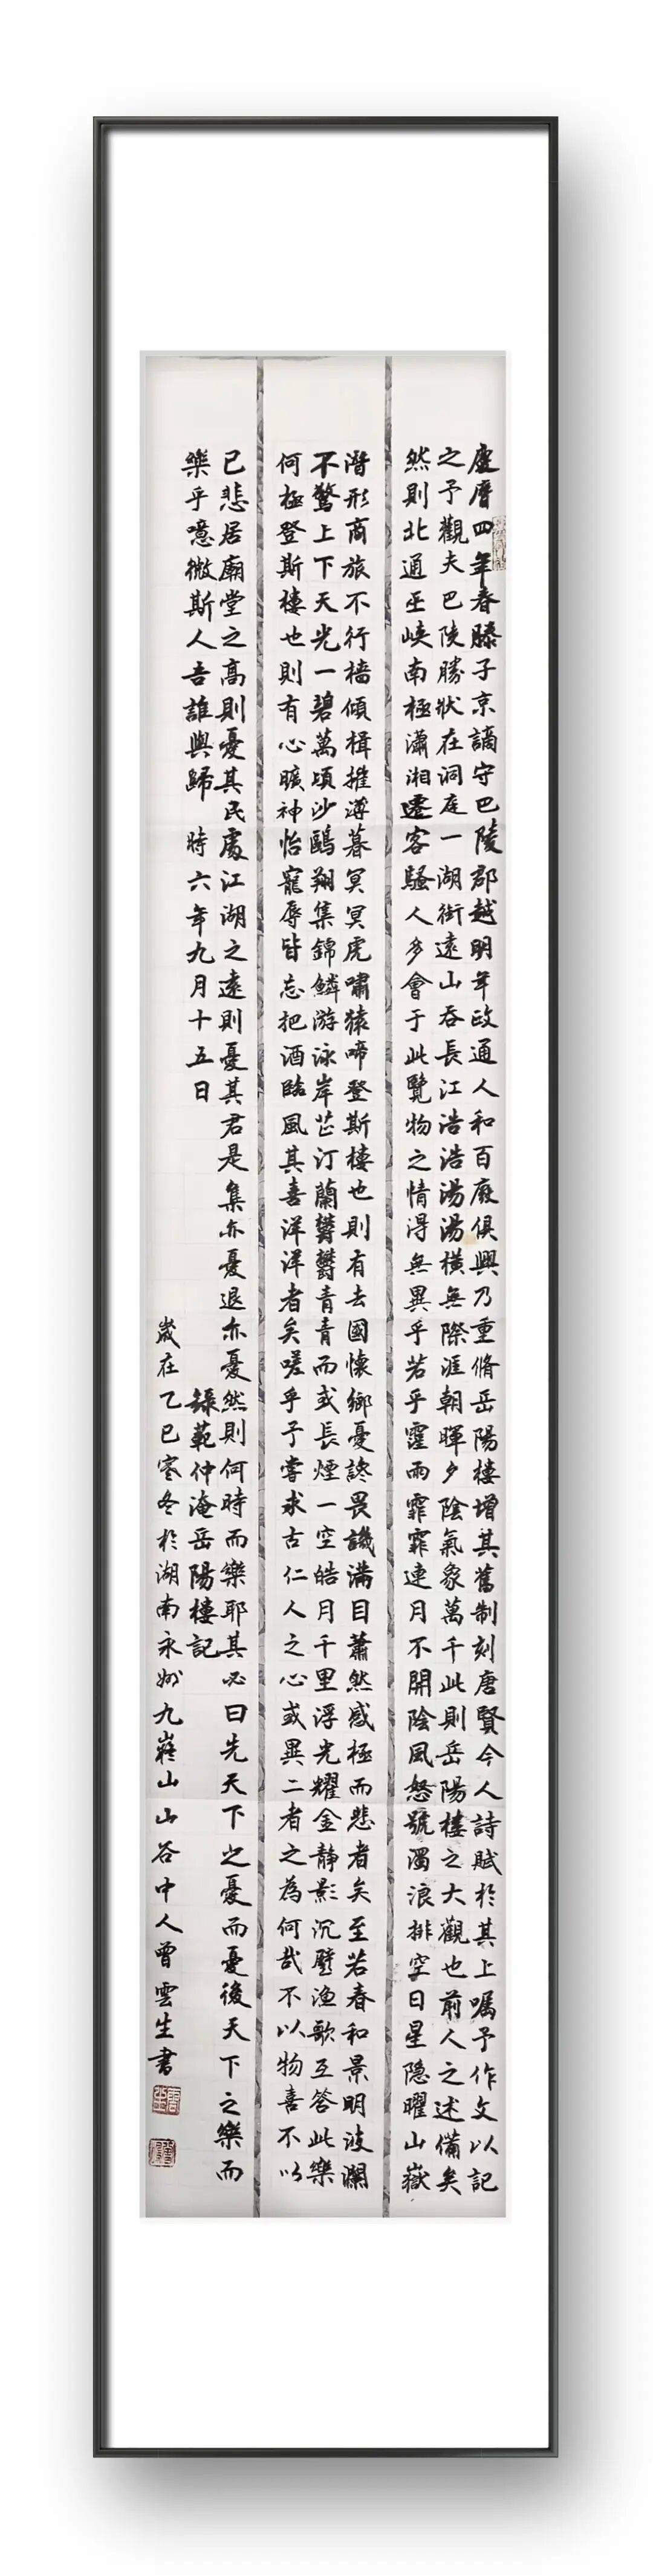 慶曆四年春滕子京謫守巴陵郡越明年政通人和百廢俱興乃重脩岳陽樓增其舊制刻唐賢今人詩賦於其上囑予作文以記
之予觀夫巴陵勝狀在洞庭一湖銜遠山吞長江浩浩湯湯橫無際涯朝暉夕陰氣象萬千此則岳陽樓之大觀也前人之述備矣
然則北通巫峽南極瀟湘遷客騷人多會于此覽物之情得無異乎若乎霪雨霏霏連月不開陰風怒號濁浪排空日星隱曜山嶽
潛形商旅不行檣傾楫摧薄暮冥冥虎嘯猿啼登斯樓也則有去國懷鄉憂讒畏譏滿目蕭然感極而悲者矣至若春和景明波瀾
不驚上下天光一碧萬頃沙鷗翔集錦鱗游泳岸芷汀蘭鬱鬱青青而或長煙一空皓月千里浮光耀金靜影沉璧漁歌互答此樂
何極登斯樓也則有心曠神怡寵辱皆忘把酒臨風其喜洋洋者矣嗟乎予嘗求古仁人之心或異二者之為何哉不以物喜不以
已悲居廟堂之高則憂其民處江湖之遠則憂其君是集亦憂退亦憂然則何時而樂耶其必曰先天下之憂而憂後天下之樂而
樂乎噫微斯人吾誰與歸 時六年九月十五日
錄範仲淹岳陽樓記
歲在乙巳寒冬於湖南永州九嶷山山谷中人曾雲生書